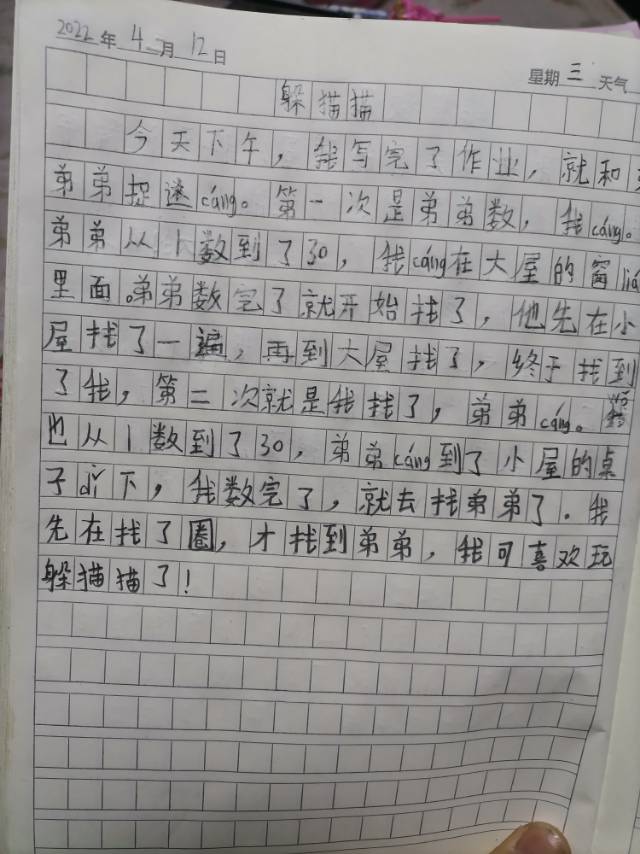 2022年 4月 12日
星期三 天气
躲猫猫
今天下午，我写完了作业，就和
弟弟捉迷cáng。第一次是弟弟数，我cáng。
弟弟从1数到了30，我cáng在大屋的窗
里面。弟弟数完了就开始找了，他先在小
屋找了一遍，再到大屋找了，终于找到
了我，第二次就是我找了，弟弟cáng。我
也从1数到了30，弟弟cáng到了小屋的桌
子dǐ下，我数完了，就去找弟弟了．我
先在找了圈，才找到弟弟，我可喜欢玩
躲猫猫了！